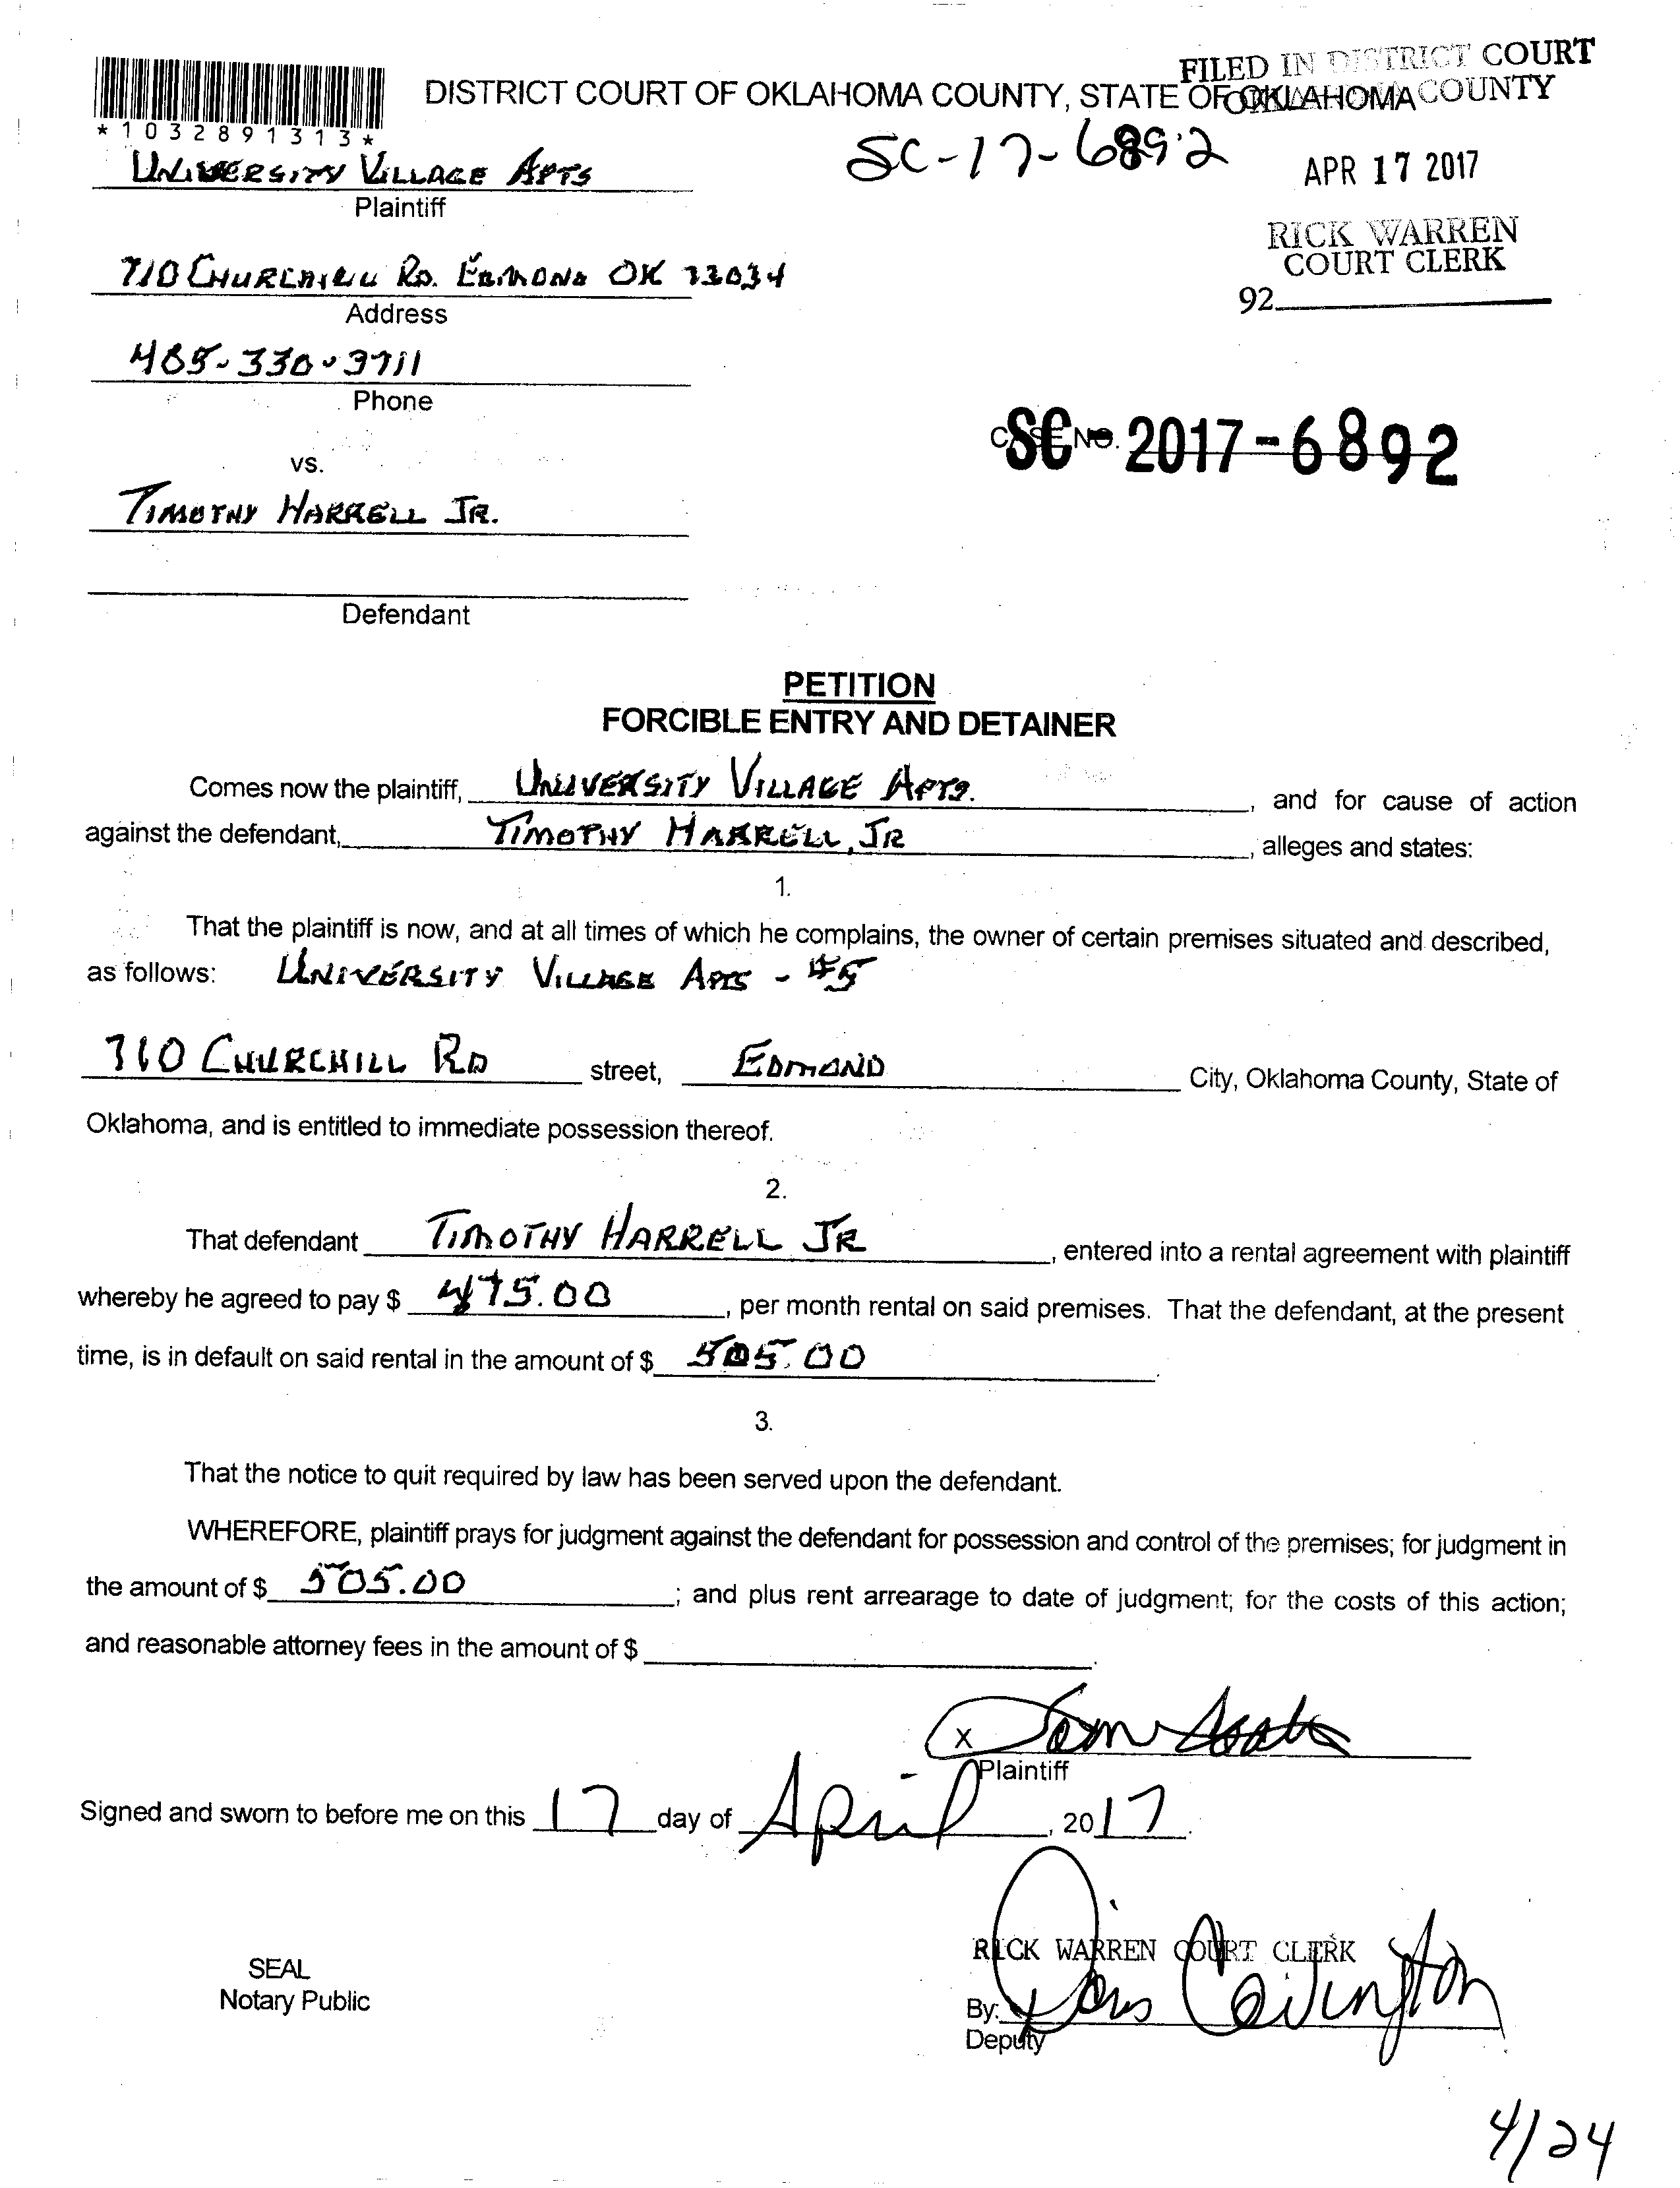 FILED IN DISTRICT COURT
OKLAHOMA COUNTY
DISTRICT COURT OF OKLAHOMA COUNTY, STATE OF OKLAHOMA
*1032891313*
SC-17-6892
APR 17 2017
UNIVERSITY VILLAGE APTS
Plaintiff
RICK WARREN
COURT CLERK
92
710 CHURCHILL RD. EDMOND OK 73034
Address
405-330-3711
Phone
CASE NO.
SC-2017-6892
vs.
TIMOTHY HARRELL JR.
Defendant
PETITION
FORCIBLE ENTRY AND DETAINER
Comes now the plaintiff, UNIVERSITY VILLAGE APTS. , and for cause of action
against the defendant, TIMOTHY HARRELL, JR , alleges and states:
1.
That the plaintiff is now, and at all times of which he complains, the owner of certain premises situated and described,
as follows: UNIVERSITY VILLAGE APTS - #5
710 CHURCHILL RD street, EDMOND City, Oklahoma County, State of
Oklahoma, and is entitled to immediate possession thereof.
2.
That defendant TIMOTHY HARRELL JR , entered into a rental agreement with plaintiff
whereby he agreed to pay $ 475.00 , per month rental on said premises. That the defendant, at the present
time, is in default on said rental in the amount of $ 505.00 .
3.
That the notice to quit required by law has been served upon the defendant.
WHEREFORE, plaintiff prays for judgment against the defendant for possession and control of the premises; for judgment in
the amount of $ 505.00 ; and plus rent arrearage to date of judgment; for the costs of this action;
and reasonable attorney fees in the amount of $ .
X
Plaintiff
Signed and sworn to before me on this 17 day of April , 2017.
RICK WARREN COURT CLERK
SEAL
Notary Public
By: Covington
Deputy
4/24